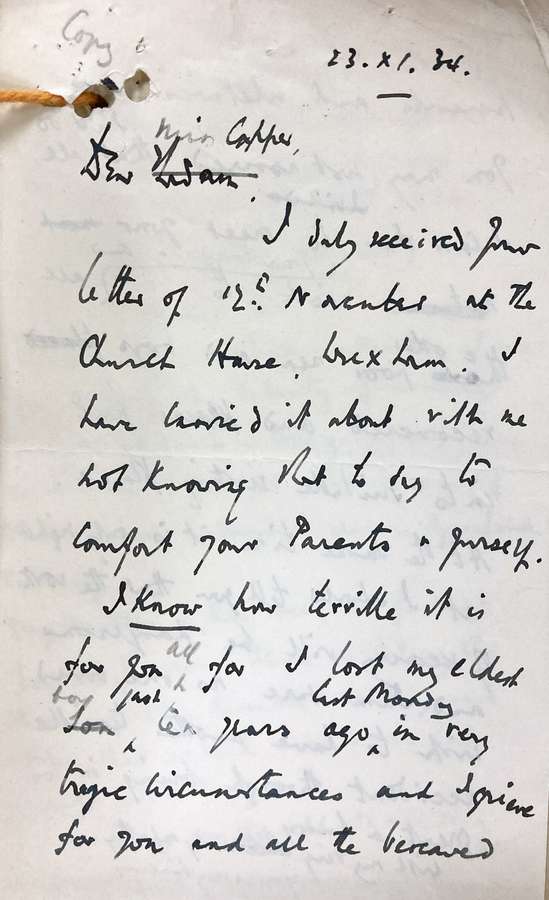 Copy
23.XI.34.
Dear Madam Miss Capper,
I duly received your
letter of 12th November at the
Church House, Wrexham. I
have carried it about with me
not knowing what to say to
comfort your Parents & yourself.
I know how terrible it is
for you all for I lost my eldest
son boy just ten years ago last Monday in very
tragic circumstances and I grieve
for you and all the bereaved